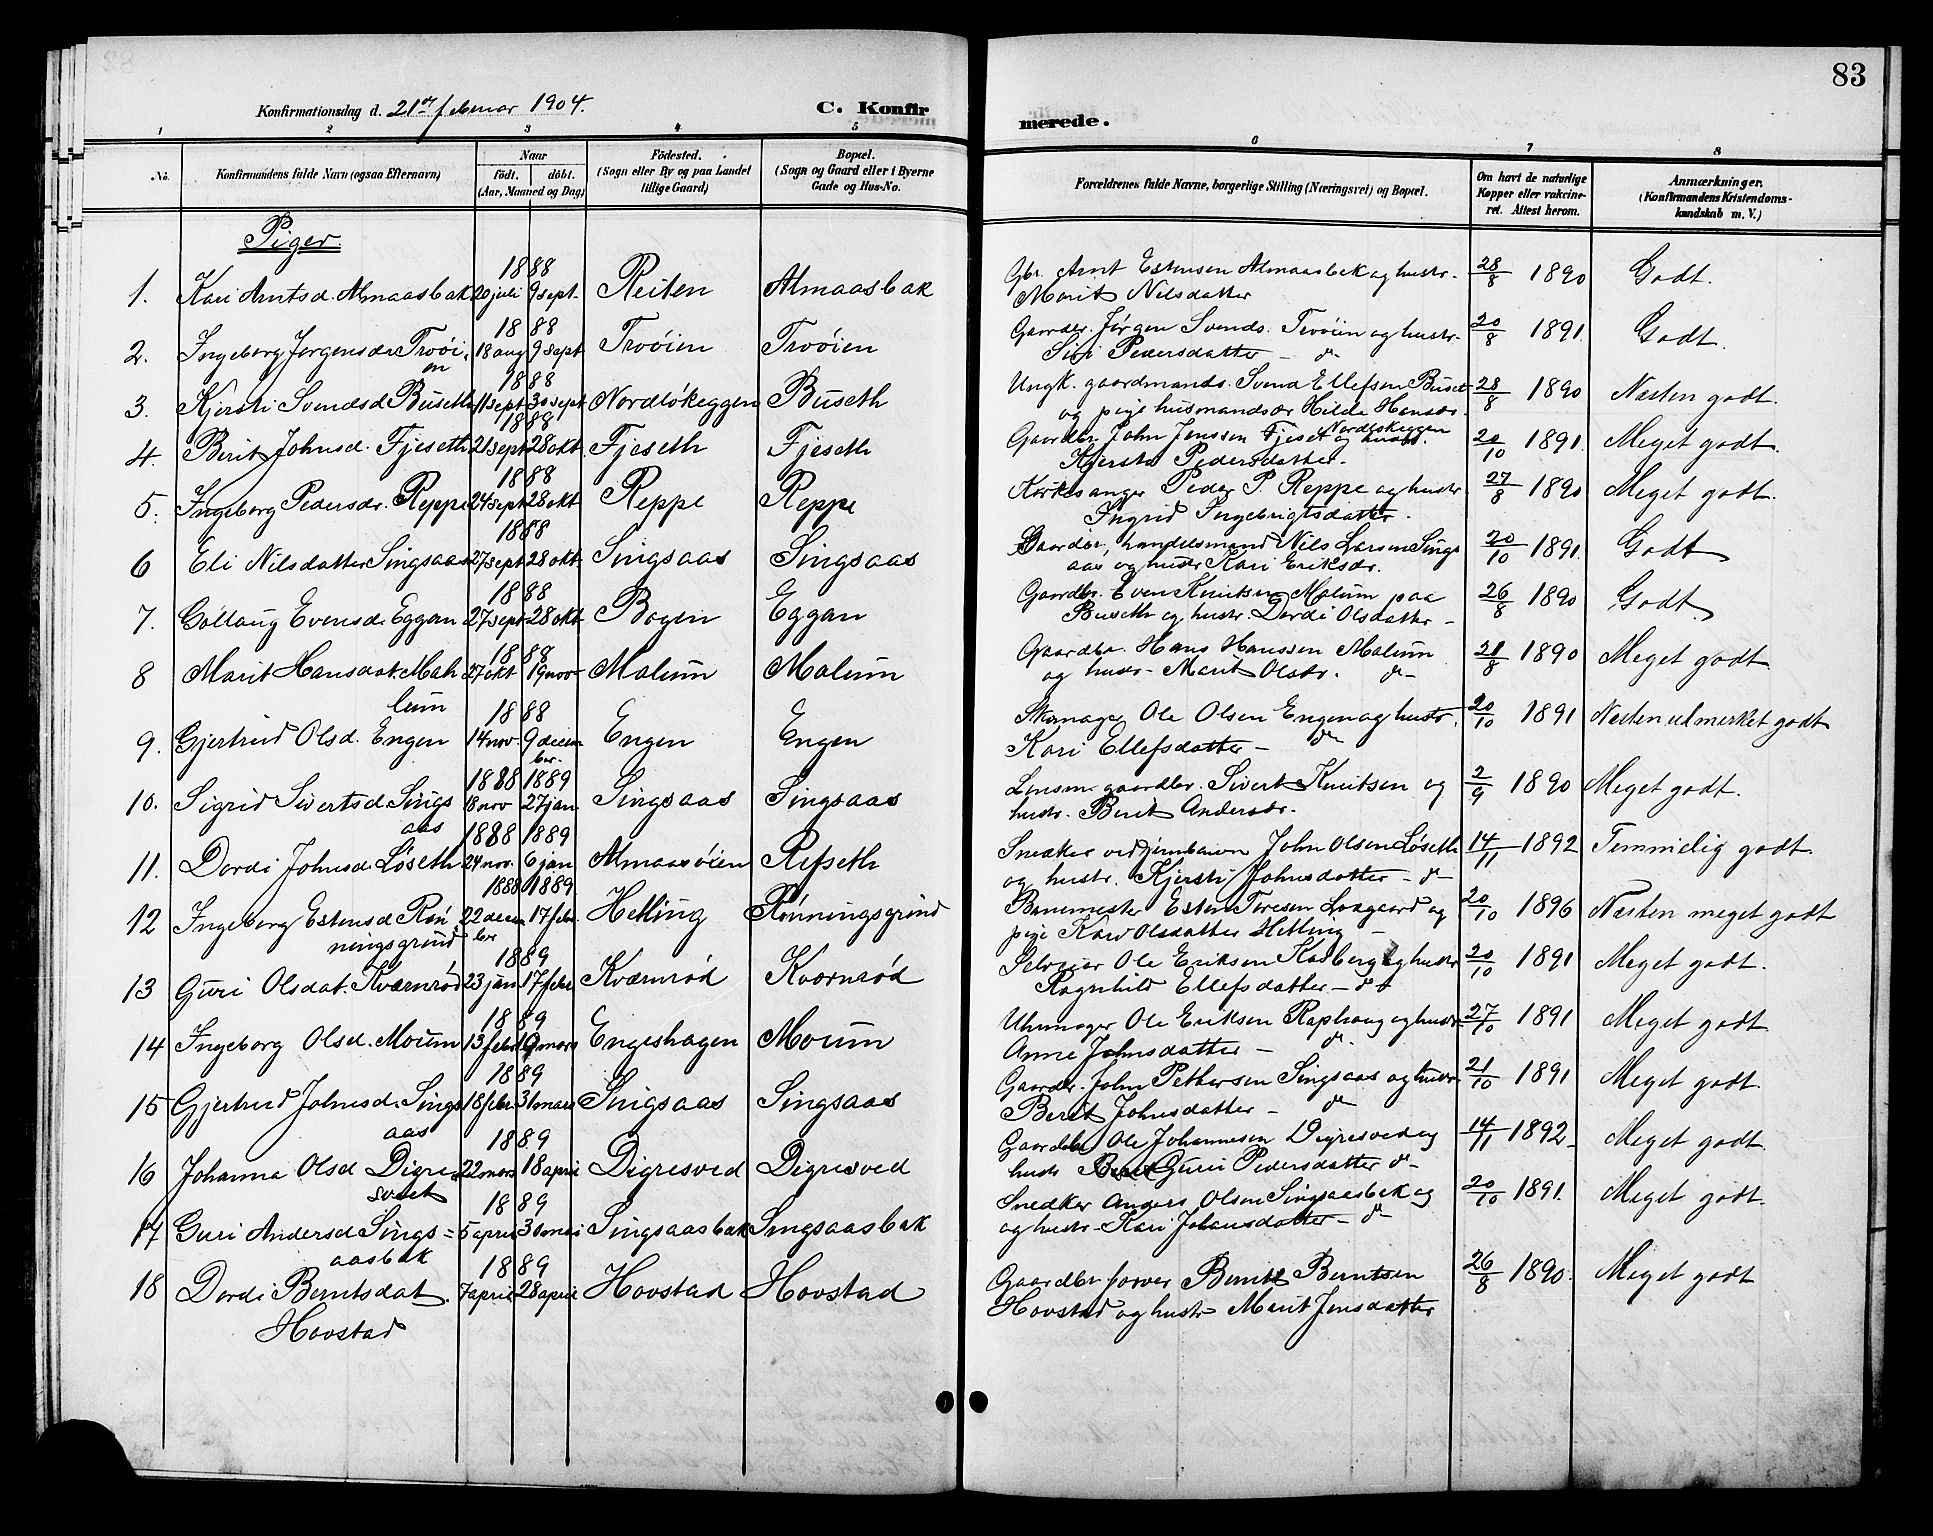 83
Konfirmationsdag d. 21de februar 1904.
C. Konfirmerede.
1 2 3 4 5 6 7 8
No. Konfirmandens fulde Navn (ogsaa Efternavn) Naar født. døbt. (Aar, Maaned og Dag) Födested. (Sogn eller By og paa Landet tillige Gaard) Bopæl. (Sogn og Gaard eller i Byerne Gade og Hus-No. Forældrenes fulde Navne, borgerlige Stilling (Næringsvei) og Bopæl. Om havt de naturlige Kopper eller vakcineret. Attest herom. Anmærkninger. (Konfirmandens Kristendomskundskab m. V.)
Piger.
1888
1. Kari Arntsd. Almaasbak 20 juli 9 sept. Reiten Almaasbak Gbr. Arnt Estensen Almaasbak og hustr. 28/8 1890 Godt.
Marit Nilsdatter
1888
2. Ingeborg Jørgensdr Troøi 18 aug 9 sept Troøien Troøien Gaardbr. Jørgen Svends. Troøien og hustr. 20/8 1891. Godt.
en Siri Pedersdatter – do
1888
3. Kjersti Svendsd Buseth 11 sept 30 sept Nordløkeggen Buseth Ungk. gaardmands. Svend Ellefsen Buset 28/8 1890 Næsten godt.
og pige husmandsdr Hilde Hansdr. Nordløskeggen
1888
4. Berit Johnsd. Fjeseth 21 sept 28 okt Fjeseth Fjeseth Gaardbr. John Jenssen Fjeset og hustr. 20/10 1891. Meget godt.
Kjersti Pedersdatter.
1888
5. Ingeborg Pedersdr. Reppe 24 sept 28 okt Reppe Reppe Kirkesanger Peder P. Reppe og hustr. 27/8 1890 Meget godt.
Ingrid Ingebrigtsdatter.
1888
6 Eli Nilsdatter Singsaas 27 sept 28 okt. Singsaas Singsaas Gaardbr, handelsmand Nils Larsen Sings 20/10 1891. Godt
aas og hustr Kari Eriksdr.
1888
7. Gollaug Evensd. Eggan 27 sept 28 okt. Bogen Eggan Gaardbr. Even Knutsen Molum paa 26/8 1890 Godt
Buseth og hustr. Dordi Olsdatter –
1888
8 Marit Hansdat. Mah 27 okt 19 nov Molum Molum Gaardbr. Hans Hanssen Molum 21/8 1890 Meget godt
lum og hustr – Marit Olsdr. do –
1888
9. Gjertrud Olsd. Engen 14 nov 9 decem Engen Engen Skomager Ole Olsen Engen og hustr. 20/10 1891 Næsten utmerket godt
ber. Kari Ellefsdatter – do
1888 1889
10. Sigrid Sivertsd. Sings 18 nov 27 jan Singsaas Singsaas Lensm. gaardbr. Sivert Knutsen og 2/9 1890 Meget godt.
aas hustr. Berit Andersdr.
1888 1889
11. Dordi Johnsd. Løseth 24 nov. 6 jan Almaasøien Refseth Snedker ved jernbanen John Olsen Løseth 14/11 1892 Temmelig godt.
og hustr. Kjersti Johnsdatter – do –
1888 1889.
12 Ingeborg Estensd. Røn 22 decem 17 febr. Helling Rønningsgrind Banemester Esten Toresen Langaard og 20/10 1896 Næsten meget godt
ningsgrind ber pige Kari Olsdatter Helling –
1889
13 Guri Olsdat. Kværnrød 23 jan 17 febr Kværnrød Kværnrød Selveier Ole Eriksen Kasberg og hustr 20/10 1891 Meget godt.
Ragnhild Ellefsdatter – do
1889
14 Ingeborg Olsd. Moum 13 febr 19 mars Engeshagen Moum Uhrmager Ole Eriksen Raphaug og hustr 27/10 1891 Meget godt
Anne Johnsdatter – do
1889
15 Gjertrud Johnsd. Sings 18 febr. 31 mars Singsaas Singsaas Gaardbr. John Pettersen Singsaas og hustr 21/10 1891 Meget godt.
aas Berit Johnsdatter – do
1889
16 Johanna Olsd Digre 22 mars 18 april Digresved Digresved Gaardbr Ole Johannesen Digresved og 14/11 1892 – Meget godt.
svedet hustr Guri Pedersdatter do –
1889
17 Guri Andersd Sings = 5 april 30 mai Singsaasbak Singsaasbak Snedker Anders Olsen Singsaasbak og 20/10 1891. Meget godt.
aasbak og hustr – Kari Johansdatter – do
1889
18 Dordi Berntsdat. 7 april 28 april Hovstad Hovstad Gaardbr. forver Bernt Berntsen 26/8 1890. Meget godt
Hovstad Hovstad og hustr – Marit Jensdatter